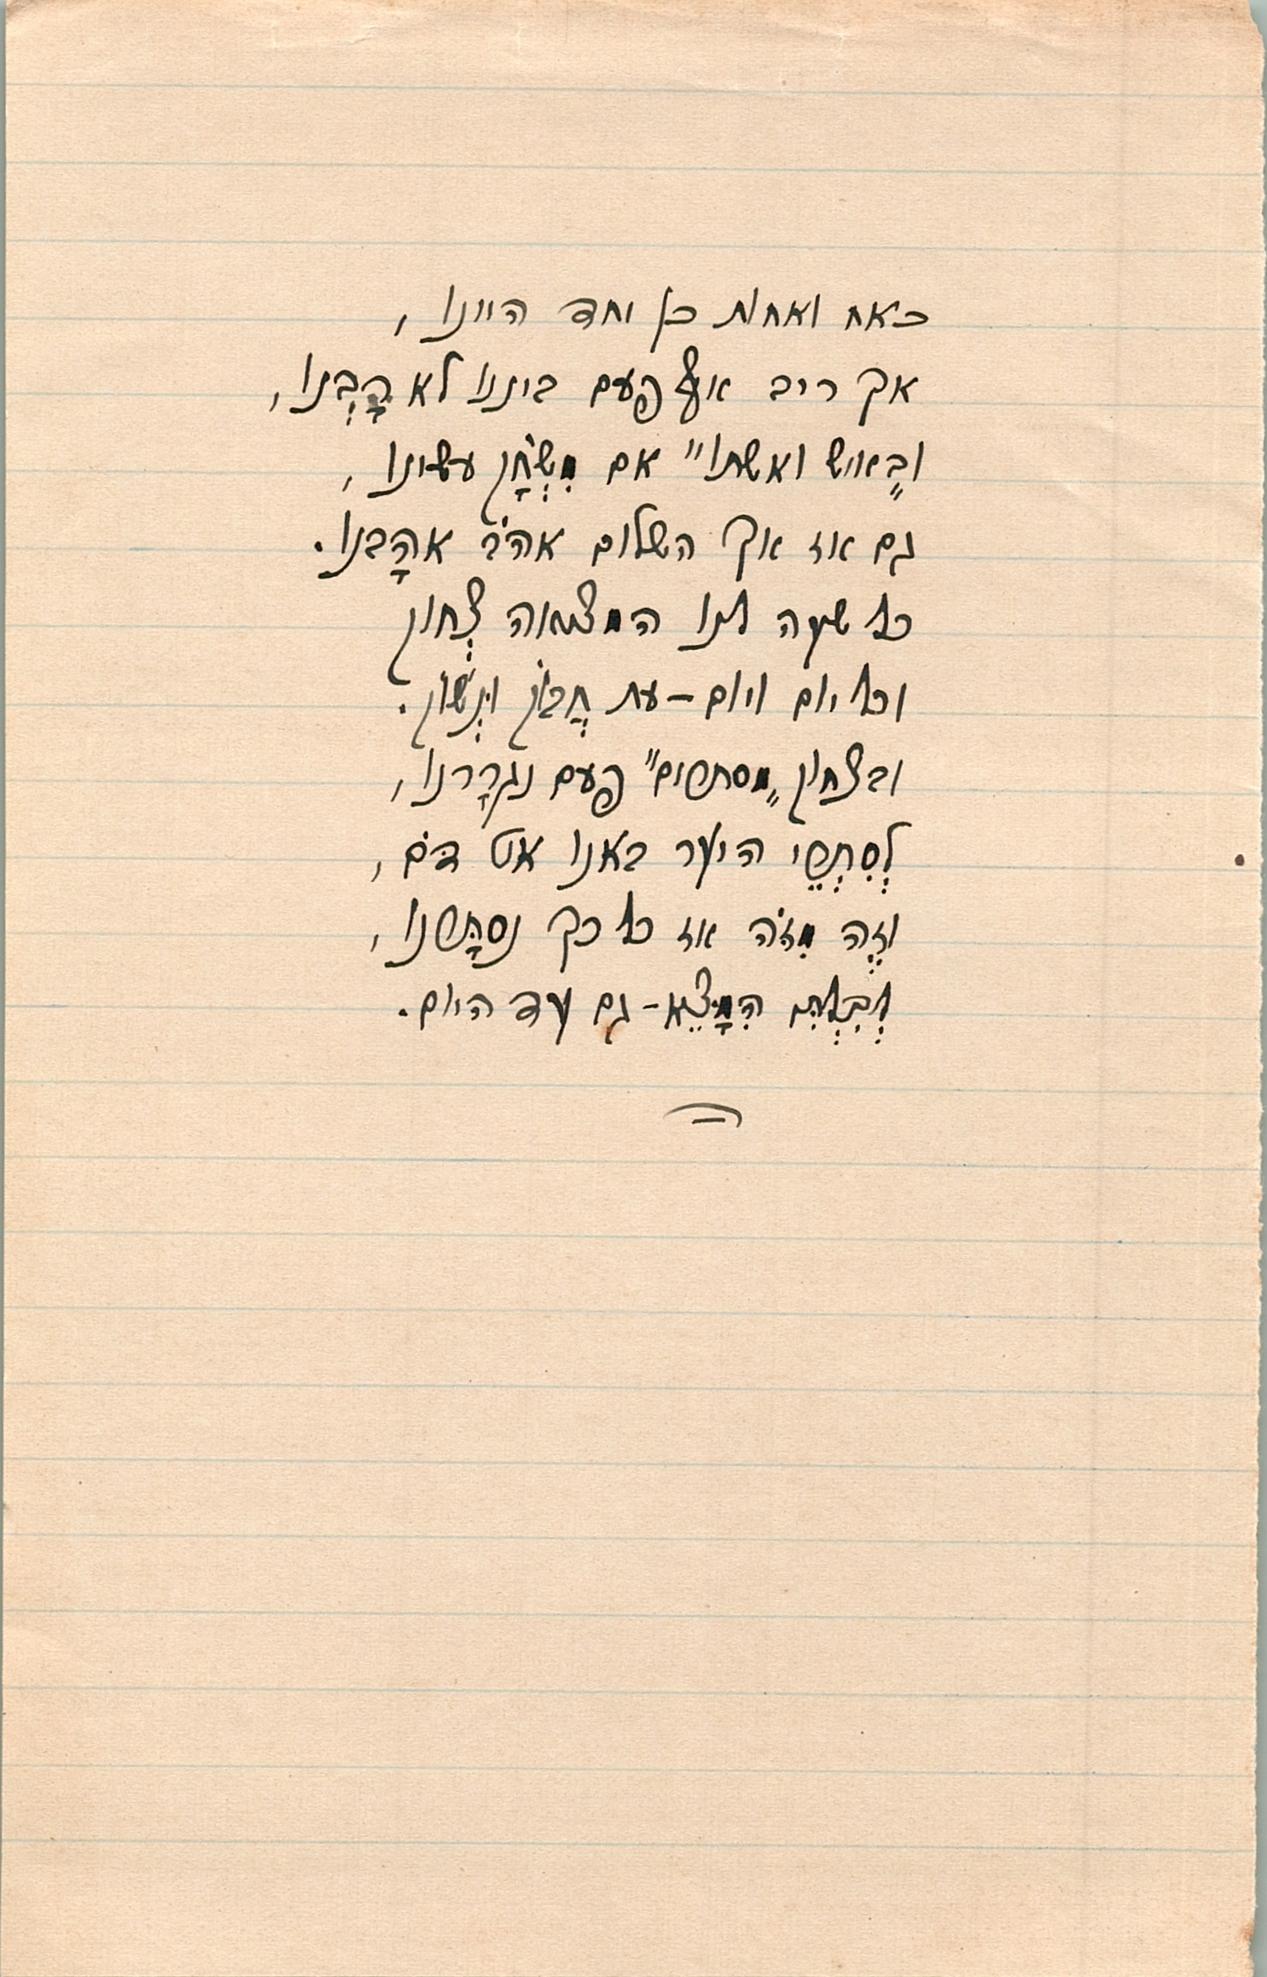 כאח ואחות כן יחד היינו,
אך ריב אף פעם בינינו לא רָבְנוּ,
וב„איש ואשתו" אם מִשְׂחָק עשינו,
גם אז אך השלום אהֹב אהָבנו.
כל שעה לנו המצאה צְחוק
וכל יום ויום – עת חֲבֹק וּנְשֹׁוק.
ובצחוק „מסתתרים" פעם נגרָרנו,
לְסִתְרֵי היער באנו אט דֹּם,
וזֶה מִזֹּה אז כל כך נסתָּרנו,
לְבִלְתִּי הִמָּצֵא – גם עד היום.